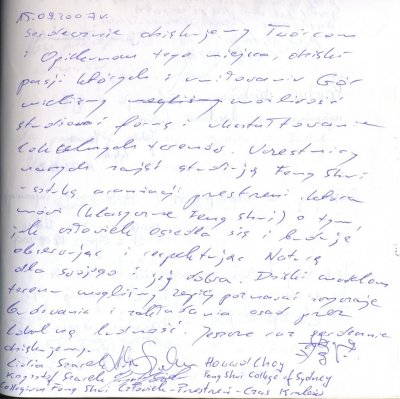 15.09.2007r.
Serdecznie dziękujemy Twórcom
i Opiekunom tego miejsca, dzięki
pasji których i umiłowaniu Gór
mieliśmy możliwość
studiować formę i ukształtowanie
tutejszych terenów. Uczestnicy
naszych zajęć studiują Feng Shui
- sztukę aranżacji przestrzeni, która
mówi (klasyczne Feng Shui) o tym,
jak człowiek osiedla się i buduje
obserwując i respektując Naturę
dla swojego i jej dobra. Dzięki modelom
terenu mogliśmy zajęć poznawać
budowania i zakładania osad przez
lokalną ludność. Jeszcze raz serdecznie
dziękujemy.
Lidia Szarek Howard Choy
Krzysztof Szarek Feng Shui College of Sydney
Collegium Feng Shui Człowiek-Przestrzeń-Czas Kraków